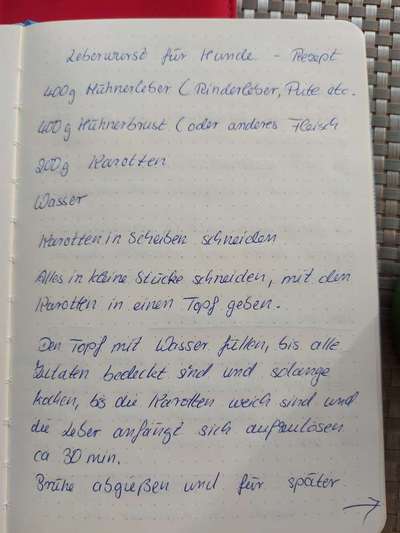 Leberwurst für Hunde - Rezept
400g Hühnerleber (Rinderleber, Pute etc.
400g Hühnerbrust (oder anderes Fleisch
200g Karotten
Wasser
Karotten in Scheiben schneiden
Alles in kleine Stücke schneiden, mit den
Karotten in einen Topf geben.
Den Topf mit Wasser füllen, bis alle
Zutaten bedeckt sind und solange
kochen, bis die Karotten weich sind und
die Leber anfängt sich aufzulösen
ca 30 min.
Brühe abgießen und für später
→